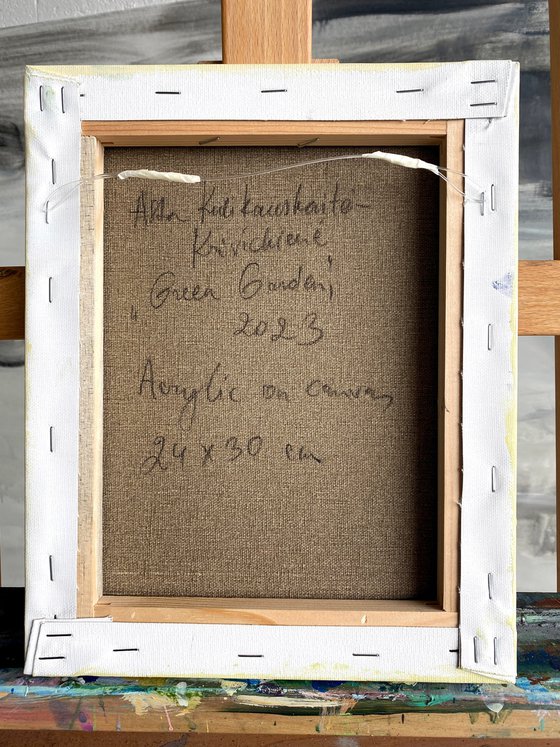 Alda Kulikauskaitė-
Krivickienė
„Green Garden",
2023
Acrylic on canvas,
24 x 30 cm